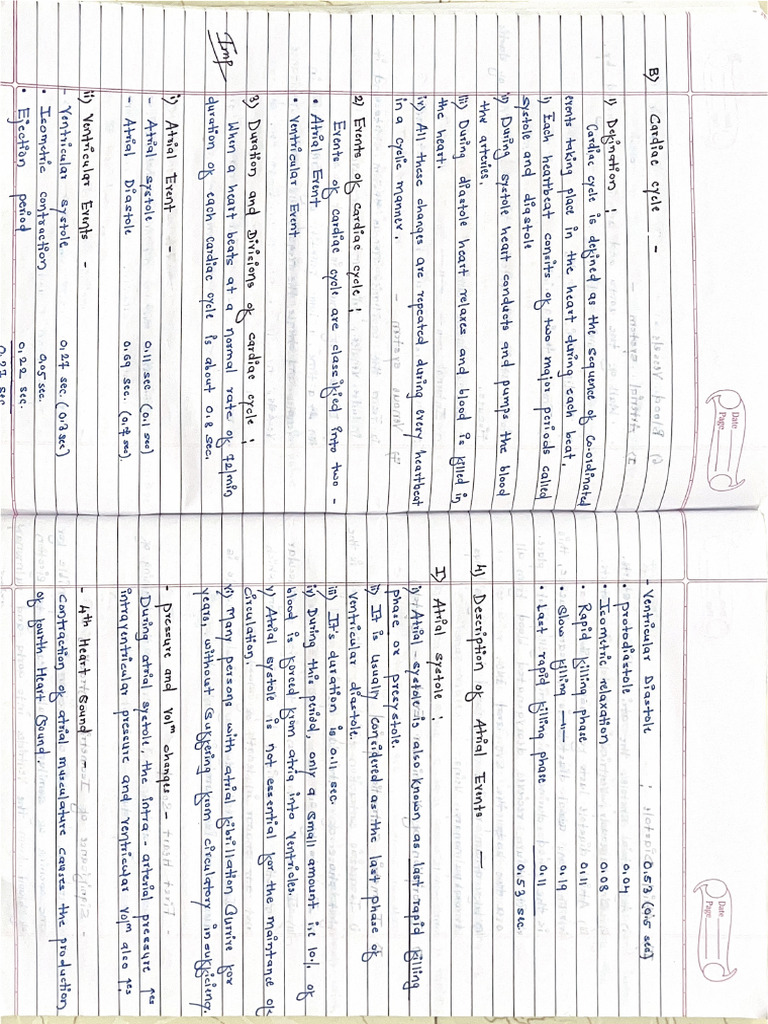 Date
Page
B) Cardiac cycle -
1) Defination :
Cardiac cycle is defined as the sequence of co-ordinated
events taking place in the heart during each beat.
i) Each heartbeat consits of two major periods called
systole and diastole
ii) During systole heart conducts and pumps the blood
the arteries.
iii) During diastole heart relaxes and blood is filled in
the heart.
iv) All these changes are repeated during every heartbeat
in a cyclic manner.
2) Events of cardiac cycle :
Events of cardiac cycle are classified into two -
• Atrial Event
• Ventricular Event
3) Duration and Divicions of cardiac cycle :
Imp
When a heart beats at a normal rate of 72/min
duration of each cardiac cycle is about 0.8 sec.
i) Atrial Event -
- Atrial systole 0.11 sec (0.1 sec)
- Atrial Diastole 0.69 sec. (0.7 sec).
ii) Ventricular Events -
- Ventricular systole 0.27 sec. (0.3 sec)
• Isometric contraction 0.05 sec.
• Ejection period 0.22 sec.
0.27 sec
Date
Page
- Ventricular Diastole : 0.53 (0.5 sec)
• protodiastole 0.04
• Isometric relaxation 0.08
• Rapid filling phase 0.11
• Slow filling —11— 0.19
• Last rapid filling phase 0.11
0.53 sec.
4) Description of Atrial Events —
I) Atrial systole :
i) Atrial systole is also known as last rapid filling
phase or presystole.
ii) It is usually considered as the last phase of
ventricular diastole.
iii) It's duration is 0.11 sec.
iv) During this period, only a small amount i.e 10% of
blood is forced from atria into ventricles.
v) Atrial systole is not essential for the maintance of
circulation.
vi) Many persons with atrial fibrillation Gurrive for
years, without suffering from circulatory insufficiency.
- pressure and Volm changes -
During atrial systole, the intra - arterial pressure ↑es
intraventricular pressure and ventricular Volm also ↑es.
- 4th Heart Sound -
contraction of atrial musculature causes the production
of fourth Heart Sound.